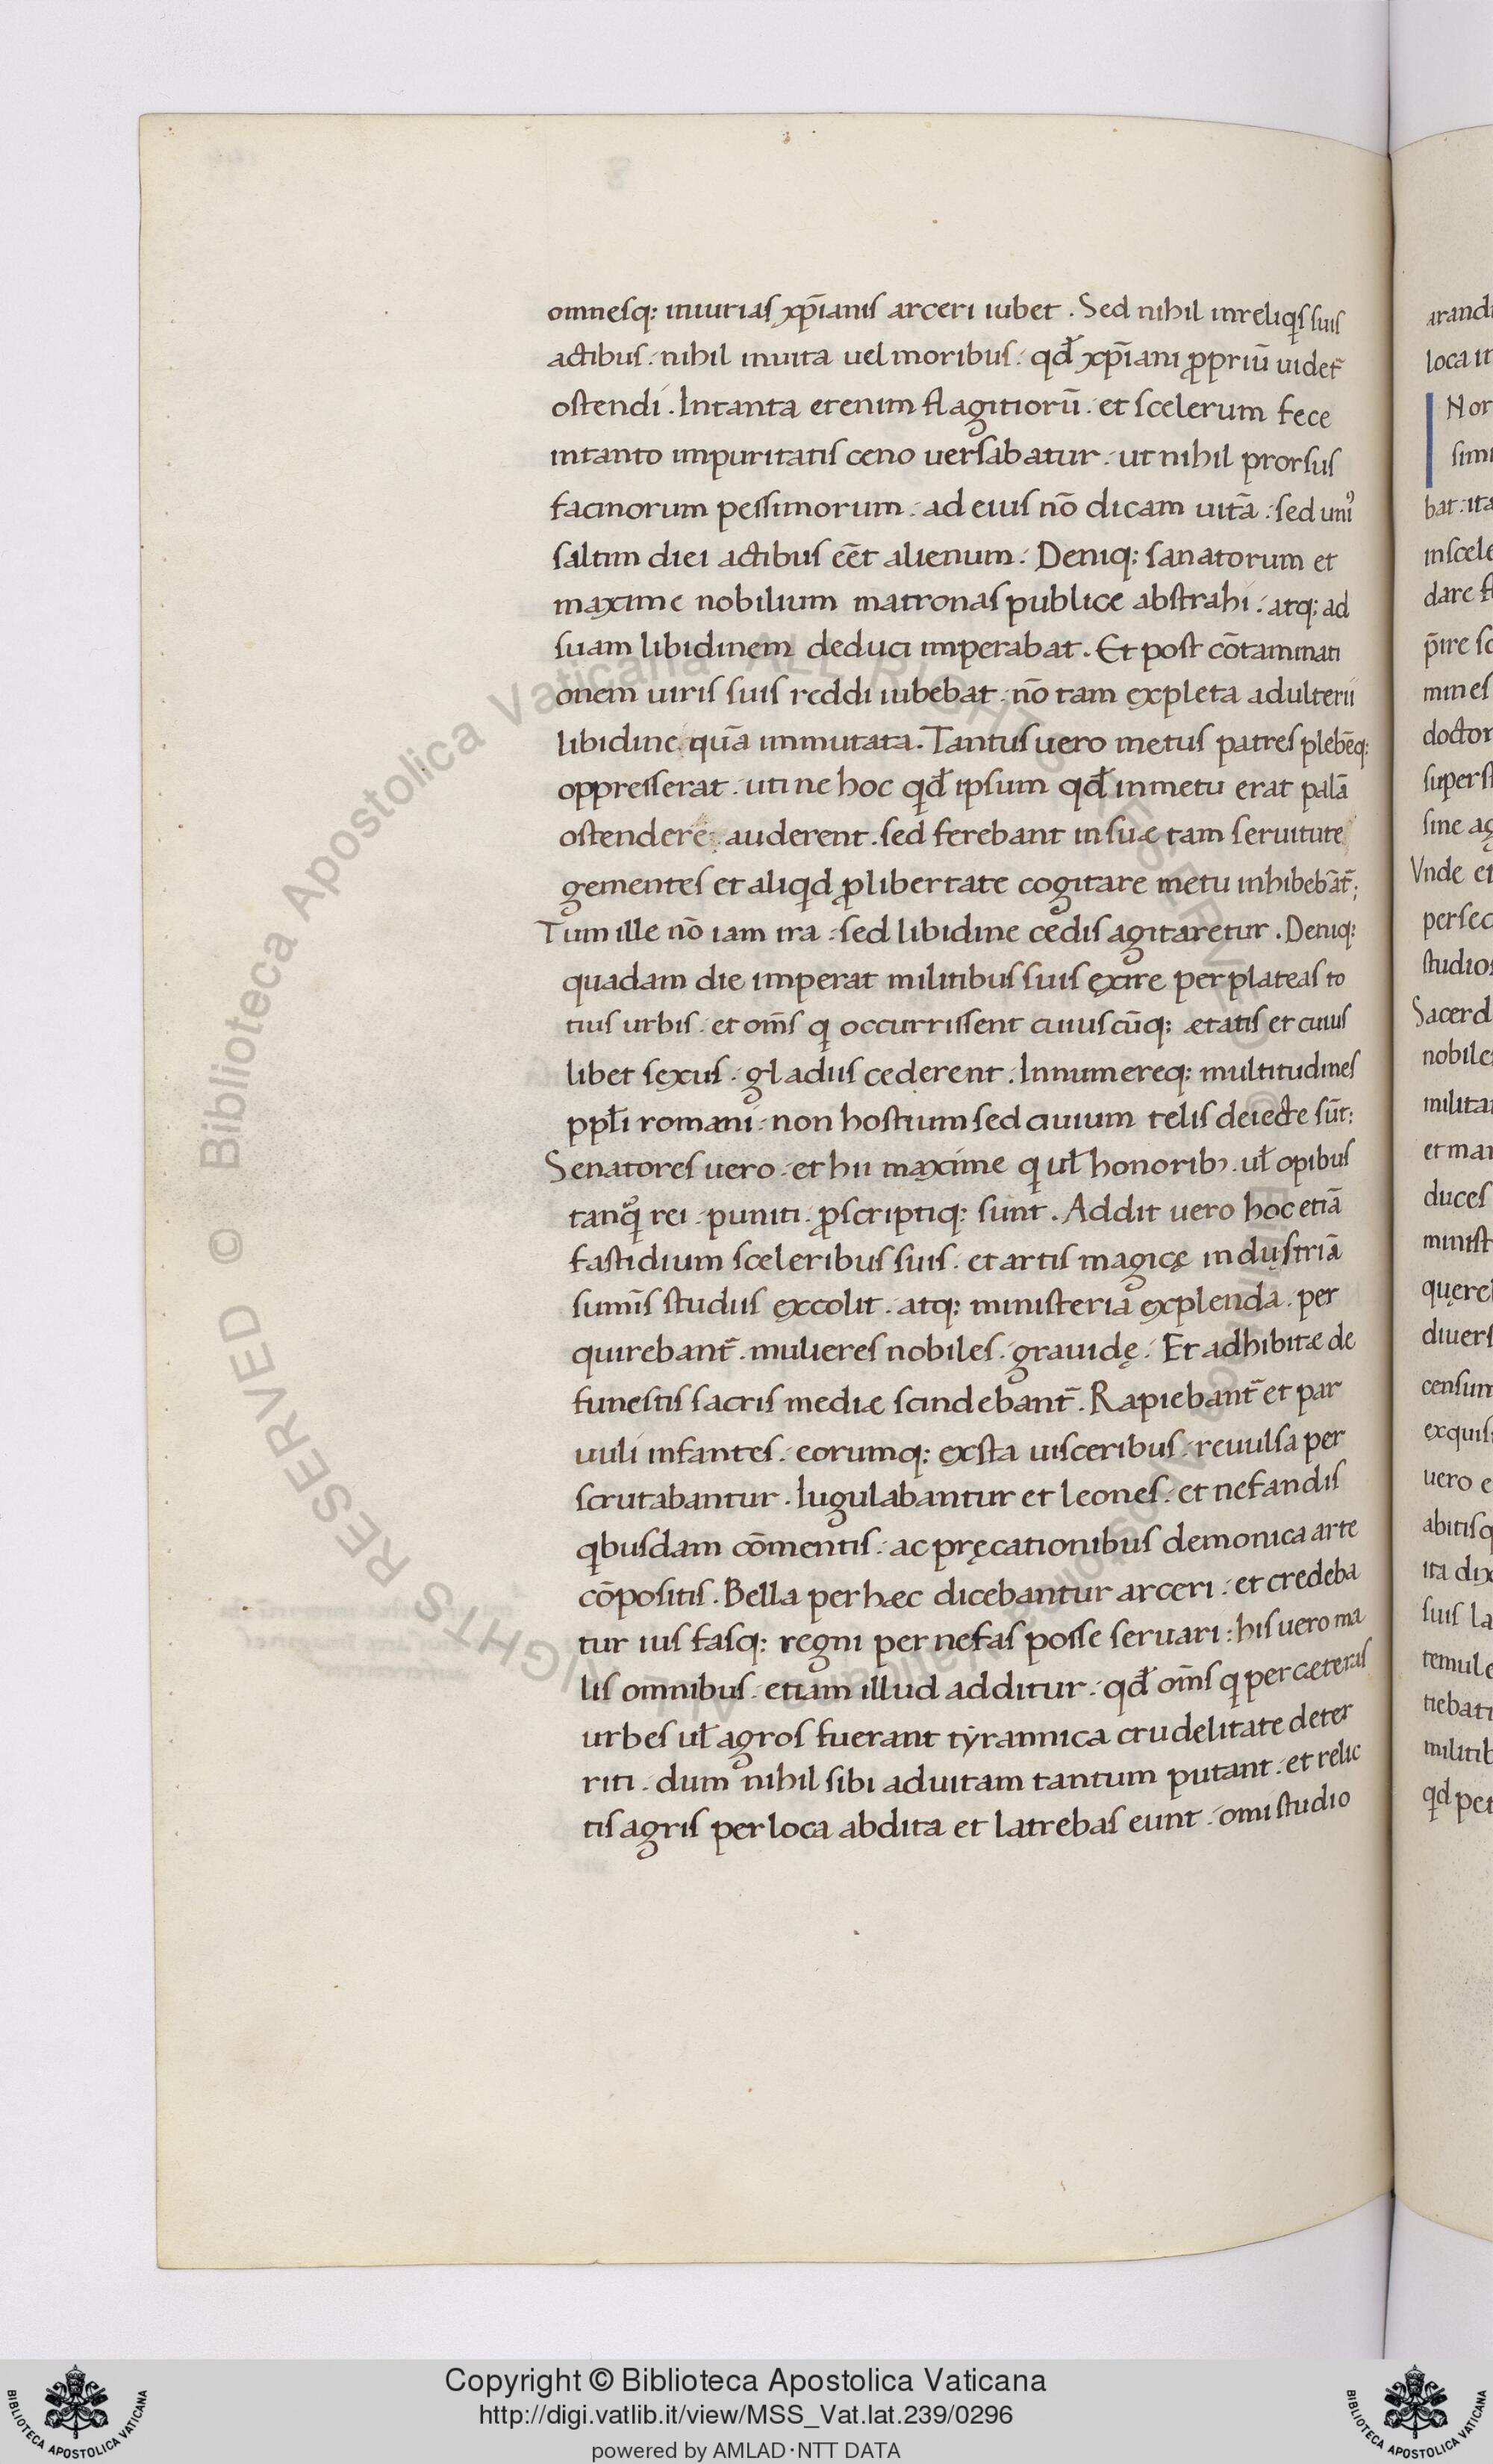 omnesq: iniurias xp̄ianis arceri iubet . Sed nihil inreliqis suis
actibus . nihil inuita uel moribus . qd̄ xp̄iani ꝓpriū uidet̄
ostendi . Intanta etenim flagitiorū . et scelerum fece
intanto impuritatis ceno uersabatur . ut nihil prorsus
facinorum pessimorum . ad eius nō dicam uitā . sed uniꝰ
saltim diei actibus eēt alienum . Deniq: sanatorum et
maxime nobilium matronas publice abstrahi . atq: ad
suam libidinem deduci imperabat . Et post cōtaminati
onem uiris suis reddi iubebat . nō tam expleta adulterii
libidine quā immutata . Tantus uero metus patres plebēq:
oppresserat . uti ne hoc qd̄ ipsum qd̄ inmetu erat palā
ostendere auderent . sed ferebant in suæ tam seruitute
gementes et aliqd ꝓlibertate cogitare metu inhibebāt̄ ;
Tum ille nō iam ira . sed libidine cedis agitaretur . Deniq:
quadam die imperat militibus suis exire perplateas to
tius urbis . et om̄s q occurrissent cuiuscūq: ætatis et cuius
libet sexus . gladiis cederent . Innumereq: multitudines
ppl̄i romani . non hostium sed ciuium telis deiecte sūt :
Senatores uero . et hii maxime q ul̄ honoribꝫ . ul̄ opibus
tanq̊ rei . puniti . ꝓscriptiq: sunt . Addit uero hoc etiā
fastidium sceleribus suis . et artis magicę indųstriā
sum̄is studiis excolit . atq: ministeria explenda . per
quirebant̄ . mulieres nobiles . grauidę . Et adhibitæ de
funestis sacris mediæ scindebant̄ . Rapiebant̄ et par
uuli infantes . eorumq: exsta uisceribus . reuulsa per
scrutabantur . Iugulabantur et leones . et nefandis
qbusdam cōmentis . ac pręcationibus demonica arte
cōpositis . Bella perhæc dicebantur arceri . et credeba
tur ius fasq: regni per nefas posse seruari : his uero ma
lis omnibus . etiam illud additur . qd̄ om̄s q percæteras
urbes ul̄ agros fuerant tẏrannica crudelitate deter
riti . dum nihil sibi aduitam tantum putant . et relic
tis agris perloca abdita et latrebas eunt . omi studio
arandi
loca it
Nor
simi
bat . ita
inscele
dare f
p̄ire sc
mines
doctor
superst
sine ag
Vnde et
persec
studios
Sacerd
nobile
militar
et mar
duces
minist
quęrel
diuers
censum
exquis
uero e
abitisq
ita dix
suis la
temule
tiebati
militib
qd pet
© Biblioteca Apostolica Vaticana ALL RIGHTS RESERVED
© Biblioteca Apostolica Vaticana ALL RIGHTS RESERVED
BIBLIOTECA APOSTOLICA VATICANA
Copyright © Biblioteca Apostolica Vaticana
http://digi.vatlib.it/view/MSS_Vat.lat.239/0296
powered by AMLAD·NTT DATA
BIBLIOTECA APOSTOLICA VATICANA